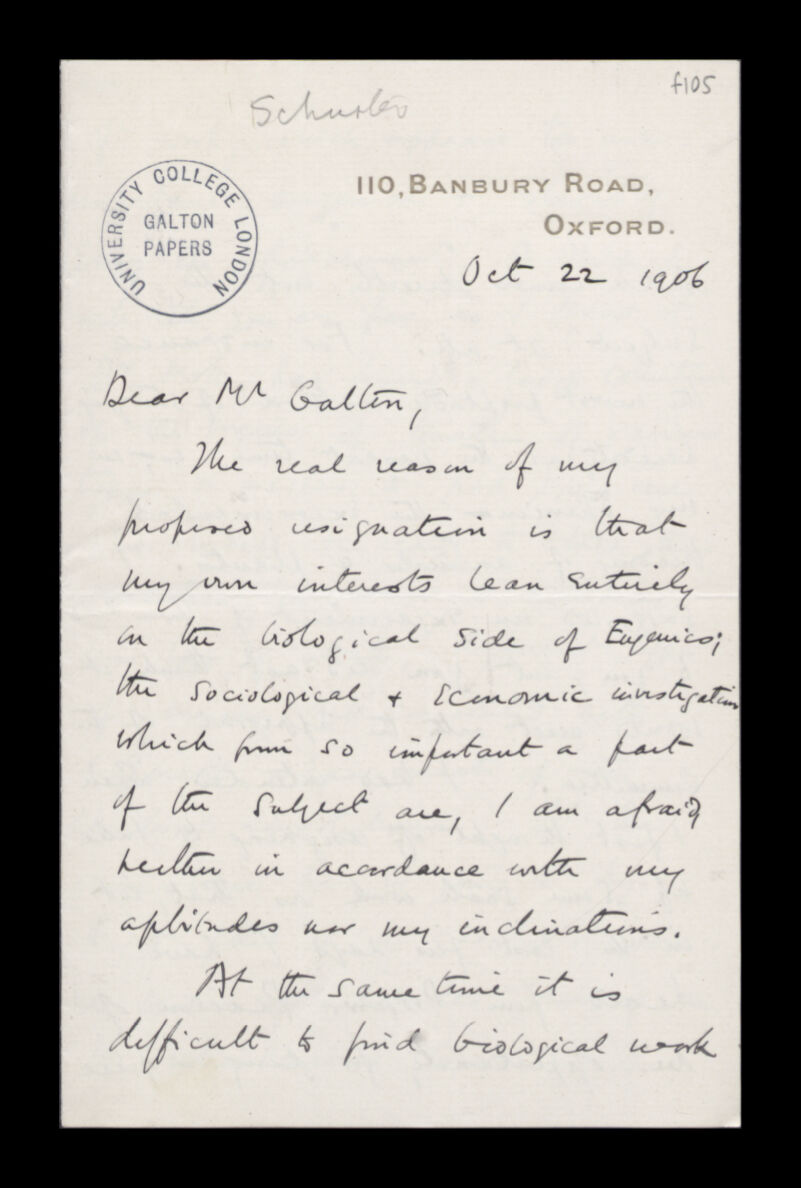 f105
Schuster
UNIVERSITY COLLEGE LONDON
GALTON
PAPERS
110, BANBURY ROAD,
OXFORD.
Oct 22 1906
Dear Mr Galton,
The real reason of my
proposed resignation is that
my own interests lean entirely
on the biological side of Eugenics;
the sociological & economic investigations
which form so important a part
of the subject are, I am afraid
neither in accordance with my
aptitudes nor my inclinations.
At the same time it is
difficult to find biological work